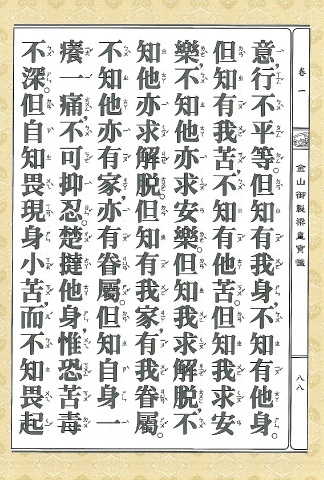 卷一
金山御製梁皇寶懺
八八
意,行不平等。但知有我身,不知有他身。
但知有我苦,不知有他苦。但知我求安
樂,不知他亦求安樂。但知我求解脫,不
知他亦求解脫。但知有我家,有我眷屬。
不知他亦有家,亦有眷屬。但知自身一
癢一痛,不可抑忍。楚撻他身,惟恐苦毒
不深。但自知畏現身小苦,而不知畏起